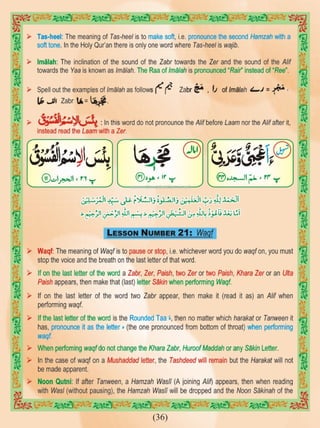 ➢ Tas-heel: The meaning of Tas-heel is to make soft, i.e. pronounce the second Hamzah with a
soft tone. In the Holy Qur'an there is only one word where Tas-heel is wajib.
➢ Imālah: The inclination of the sound of the Zabr towards the Zer and the sound of the Alif
towards the Yaa is known as Imālah. The Raa of Imālah is pronounced "Rai" instead of "Ree".
➢ Spell out the examples of Imālah as follows
Zabr
of Imālah
Zabr
➢ بِئْسَ الِاسْمُ الْفُسُوْقُ : In this word do not pronounce the Alif before Laam nor the Alif after it,
instead read the Laam with a Zer.
ءَاَ۬عْجَمِیٌّ وَّعَرَبِیٌّ
مَجْرٖىهَا
بِئْسَ الِاسْمُ الْفُسُوْقُ
اَلْحَمْدُ لِلّٰهِ رَبِّ الْعٰلَمِیْنَ وَالصَّلٰوةُ وَالسَّلَامُ عَلٰی سَیِّدِ الْمُرْسَلِیْنَ
اَمَّا بَعْدُ فَاَعُوْذُ بِاللّٰهِ مِنَ الشَّیْطٰنِ الرَّجِیْمِ بِسْمِ اللّٰهِ الرَّحْمٰنِ الرَّحِیْمِ
LESSON NUMBER 21: Waqf
➢ Waqf: The meaning of Waqf is to pause or stop, i.e. whichever word you do waqf on, you must
stop the voice and the breath on the last letter of that word.
➢ If on the last letter of the word a Zabr, Zer, Paish, two Zer or two Paish, Khara Zer or an Ulta
Paish appears, then make that (last) letter Sākin when performing Waqf.
➢ If on the last letter of the word two Zabr appear, then make it (read it as) an Alif when
performing waqf.
➢ If the last letter of the word is the Rounded Taa ة, then no matter which harakat or Tanween it
has, pronounce it as the letter ه (the one pronounced from bottom of throat) when performing
waqf.
➢ When perfoming waqf do not change the Khara Zabr, Huroof Maddah or any Sākin Letter.
➢ In the case of waqf on a Mushaddad letter, the Tashdeed will remain but the Harakat will not
be made apparent.
➢ Noon Qutni: If after Tanween, a Hamzah Waslī (A joining Alif) appears, then when reading
with Wasl (without pausing), the Hamzah Waslī will be dropped and the Noon Sākinah of the
(36)